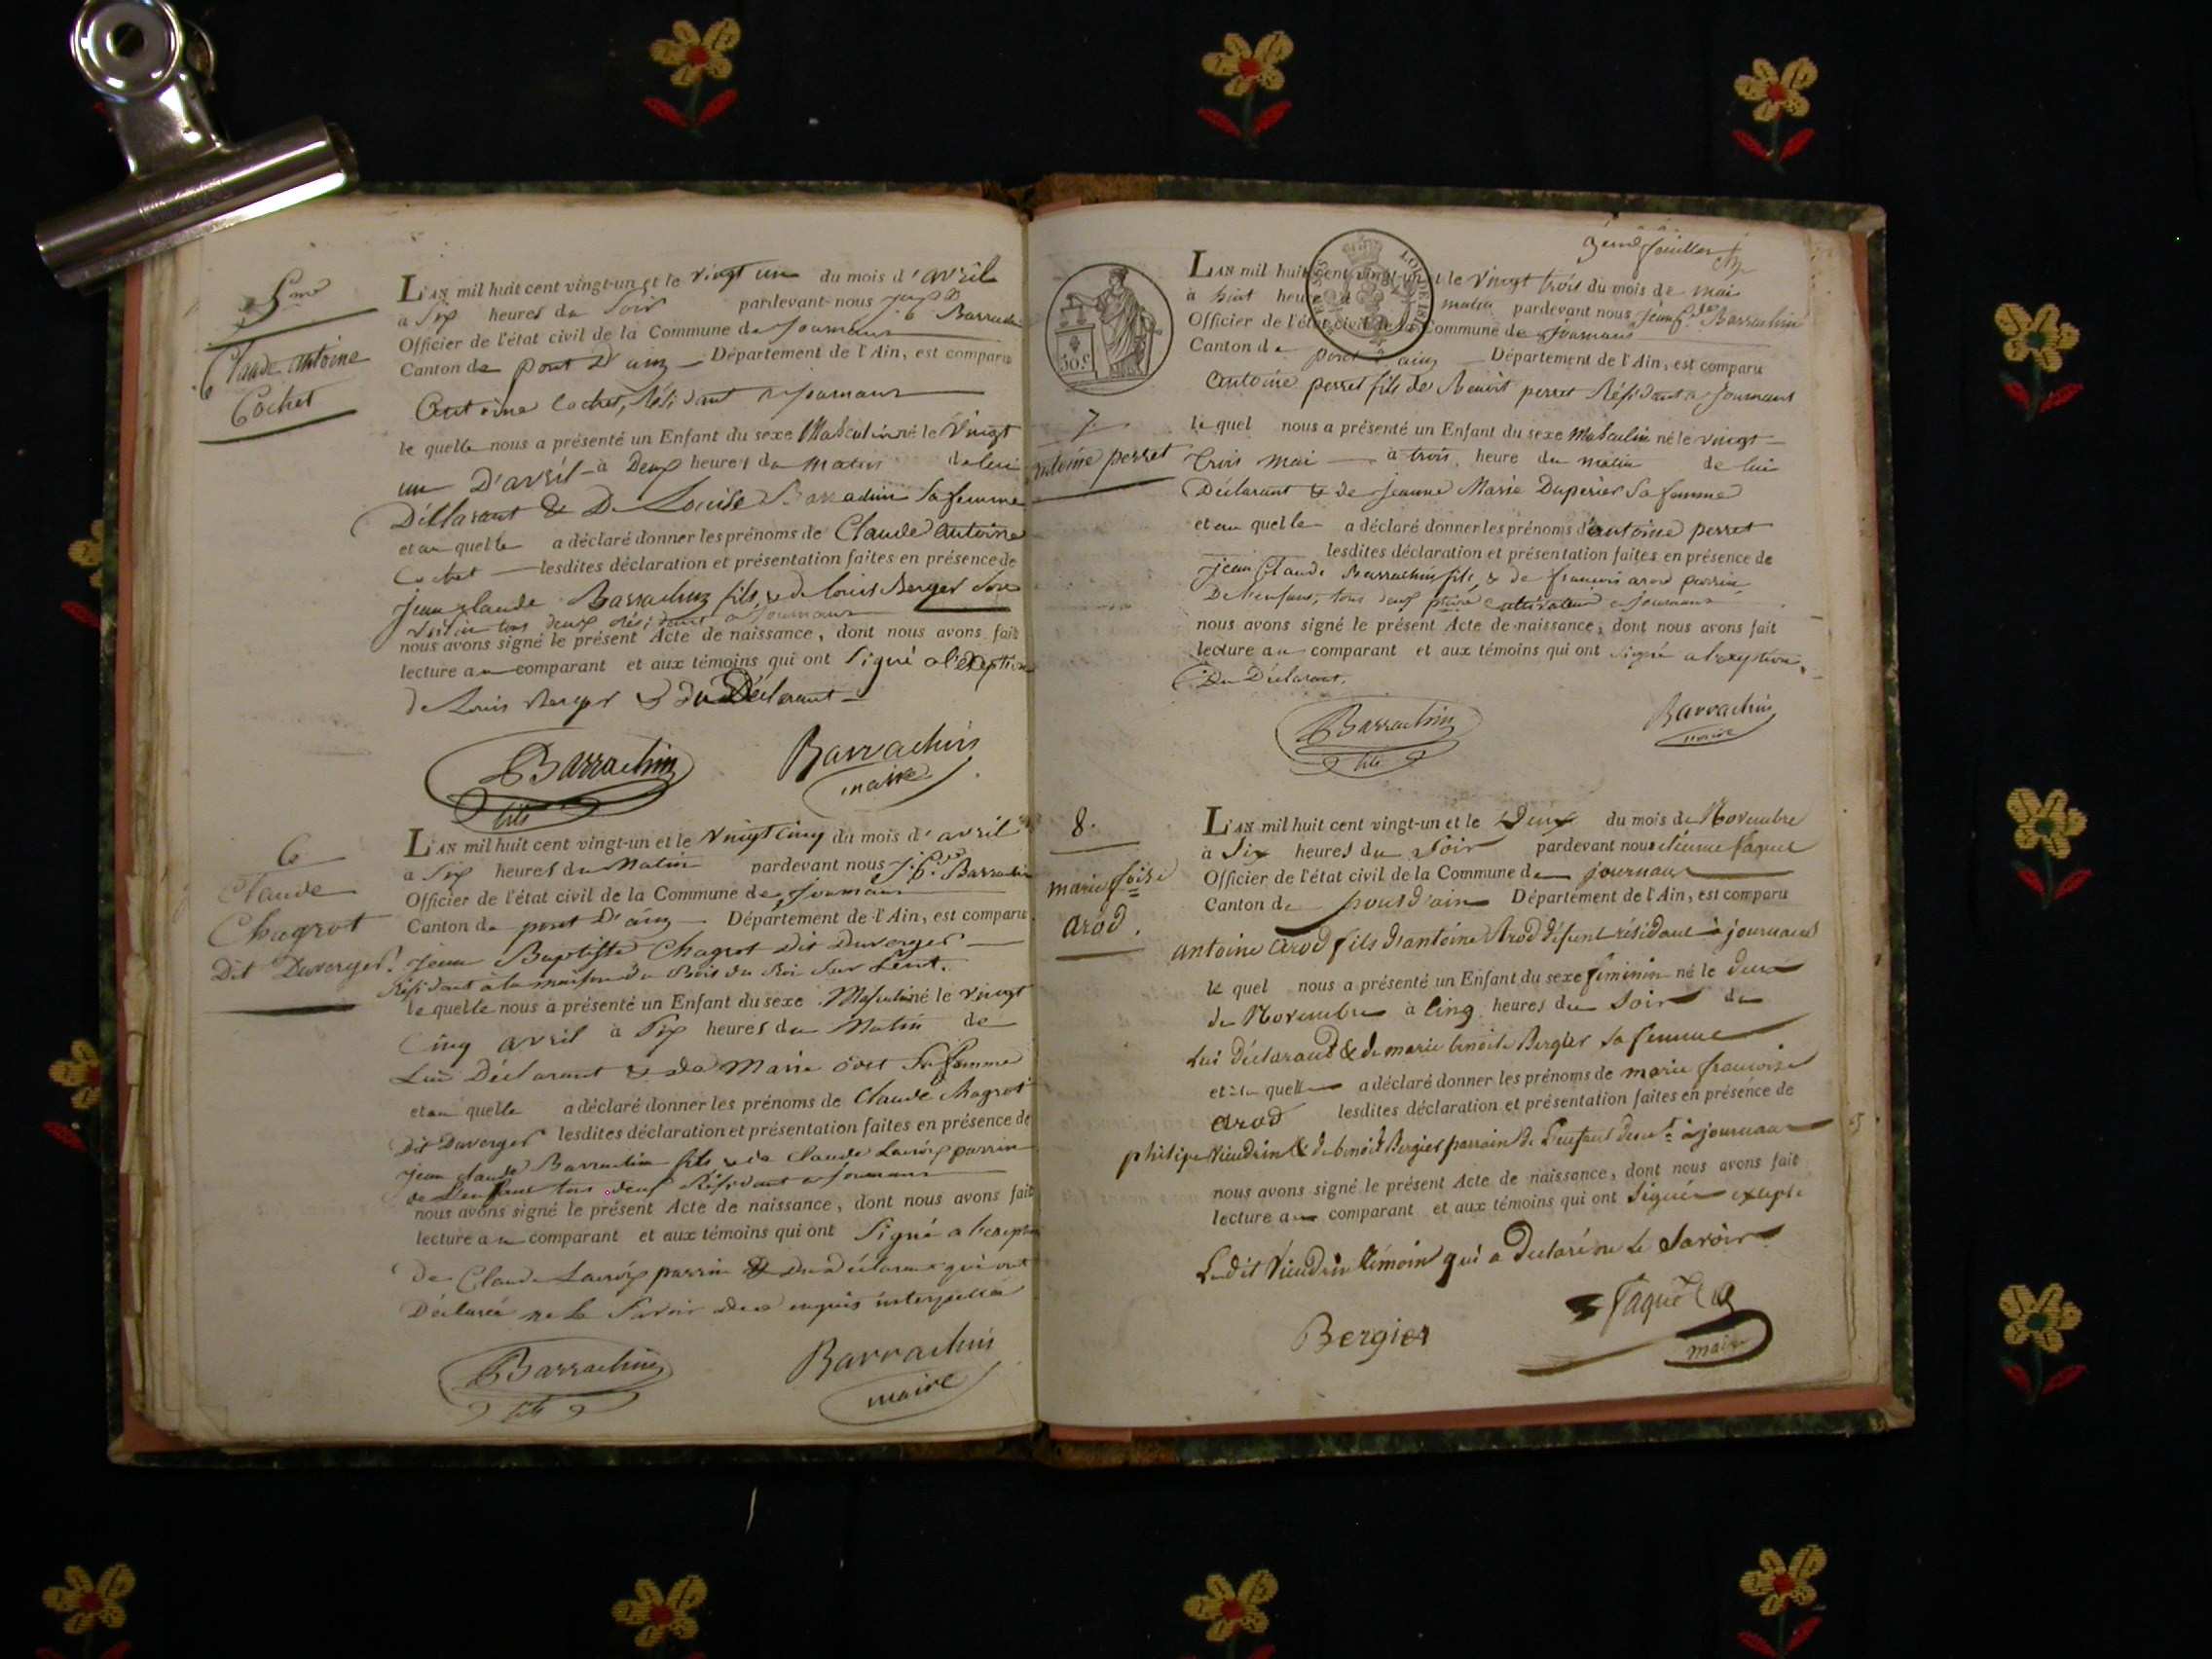 5me
Claude Antoine
Cochet
L'AN mil huit cent vingt-un et le vingt un du mois d'avril
à Six heures du Soir pardevant nous Barrachin
Officier de l'état civil de la Commune de Journans
Canton de pont D'ain Département de l'Ain, est comparu
Antoine Cochet, Résidant a Journans
le quelle nous a présenté un Enfant du sexe Masculin né le Vingt
un D'avril à Deux heures du Matin de lui
Déclarant & De Louise Barrachin Sa femme
et au quelle a déclaré donner les prénoms de Claude Antoine
Cochet lesdites déclaration et présentation faites en présence de
Jean Claude Barrachin fils, & de Louis Berger Son
voisin tous deux résidant a Journans
nous avons signé le présent Acte de naissance, dont nous avons fait
lecture au comparant et aux témoins qui ont Signé a l'exeption
de Louis Berger & du Déclarant
Barrachin
fils
Barrachin
maire
6
Claude
Chagrot
Dit Duverger.
L'AN mil huit cent vingt-un et le Vingt Cinq du mois d'avril
à Six heures du Matin pardevant nous Barrachin
Officier de l'état civil de la Commune de Journans
Canton de pont D'ain Département de l'Ain, est comparu
Jean Baptiste Chagrot Dit Duverger
Résidant à la maison du Bois du Roi Sur Lent.
le quelle nous a présenté un Enfant du sexe Masculin né le vingt
Cinq avril à Six heures du Matin de
Lui Déclarant & de Marie Sa femme
et au quelle a déclaré donner les prénoms de Claude Chagrot
dit Duverger lesdites déclaration et présentation faites en présence de
Jean Claude Barrachin fils & de Claude Lacroix parrin
de L'enfant tous deux Résidant a Journans
nous avons signé le présent Acte de naissance, dont nous avons fait
lecture au comparant et aux témoins qui ont Signé a l'exeption
De Claude Lacroix parrin & Du Déclarant qui ont
Déclaré ne le Savoir de ce enquis interpellés
Barrachin
fils
Barrachin
maire
3eme feuillet
50 c.
LOI DE 1816
L'AN mil huit cent vingt-un et le Vingt trois du mois de mai
à huit heures du matin pardevant nous Barrachin
Officier de l'état civil de la Commune de Journans
Canton de pont d'ain Département de l'Ain, est comparu
Antoine perret fils de Benoit perret Résidant a Journans
7.
antoine perret
le quel nous a présenté un Enfant du sexe Masculin né le vingt
trois mai à trois heure du matin de lui
Déclarant & de Jeanne Marie Duperier Sa femme
et au quelle a déclaré donner les prénoms d'antoine perret
lesdites déclaration et présentation faites en présence de
Jean Claude Barrachin fils, & de françois arod parrin
De l'enfant, tous deux cultivateur a Journans
nous avons signé le présent Acte de naissance, dont nous avons fait
lecture au comparant et aux témoins qui ont signé a l'exeption
Du Déclarant.
Barrachin
fils
Barrachin
maire
8.
marie foise
arod.
L'AN mil huit cent vingt-un et le Deux du mois de Novembre
à Six heures du Soir pardevant nous étienne faquet
Officier de l'état civil de la Commune de journans
Canton de pont d'ain Département de l'Ain, est comparu
antoine Arod fils d'antoine Arod défunt résidant à journans
le quel nous a présenté un Enfant du sexe feminin né le deux
de Novembre à Cinq heures du Soir de
Lui Déclarant & de marie benoite Bergier Sa femme
et à la quelle a déclaré donner les prénoms de marie françoise
arod lesdites déclaration et présentation faites en présence de
philipe Vieudrin & de benoit Bergier parrain de l'enfant à journans
nous avons signé le présent Acte de naissance, dont nous avons fait
lecture au comparant et aux témoins qui ont Signés exepté
Ledit Vieudrin témoin qui a Déclaré ne le Savoir
Bergier
faquet
maire